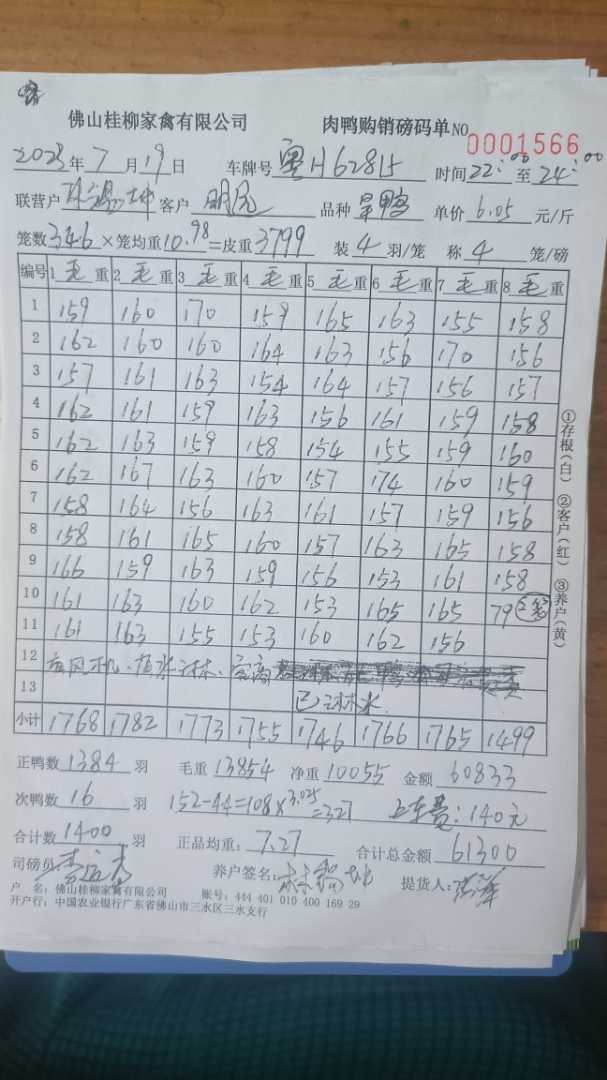 佛山桂柳家禽有限公司 肉鸭购销磅码单 NO 0001566
2023年7月19日 车牌号 粤H62815 时间22:00至24:00
联营户 客户 明记 品种 旱鸭 单价 6.05 元/斤
笼数346×笼均重10.98=皮重3799 装4羽/笼 称4笼/磅
编号 1毛重 2毛重 3毛重 4毛重 5毛重 6毛重 7毛重 8毛重
1 159 160 170 159 165 163 155 158
2 162 160 160 164 163 156 170 156
3 157 161 163 154 164 157 156 157
4 162 161 159 163 156 161 159 158
5 162 163 159 158 154 155 159 160
6 162 167 163 160 157 174 160 159
7 158 164 156 163 161 157 159 156
8 158 161 165 160 157 163 165 158
9 166 159 163 159 156 153 161 158
10 161 163 160 162 153 165 165 79 2笼
11 161 163 155 153 160 162 156
12 有风机
13 已淋水
小计 1768 1782 1773 1755 1746 1766 1765 1499
①存根(白) ②客户(红) ③养户(黄)
正鸭数1384羽 毛重13854 净重10055 金额60833
次鸭数16羽 152-44=108×3.025=327 上车费:140元
合计数1400羽 正品均重:7.27 合计总金额61300
司磅员: 养户签名: 提货人:
户 名:佛山桂柳家禽有限公司 账号:444 401 010 400 169 29
开户行:中国农业银行广东省佛山市三水区三水支行